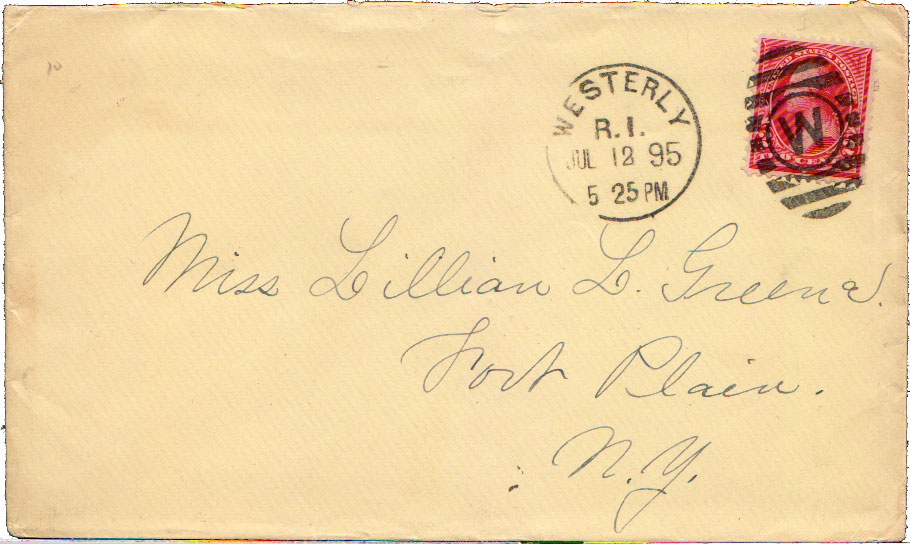 WESTERLY
R.I.
JUL 12 95
5 25 PM
W
Miss Lillian L. Greene.
Fort Plain.
N.Y.